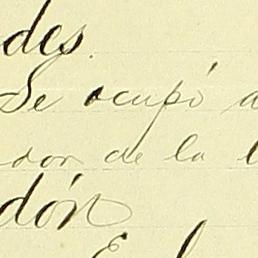 des.
Se ocupó a
dor de la l
dón